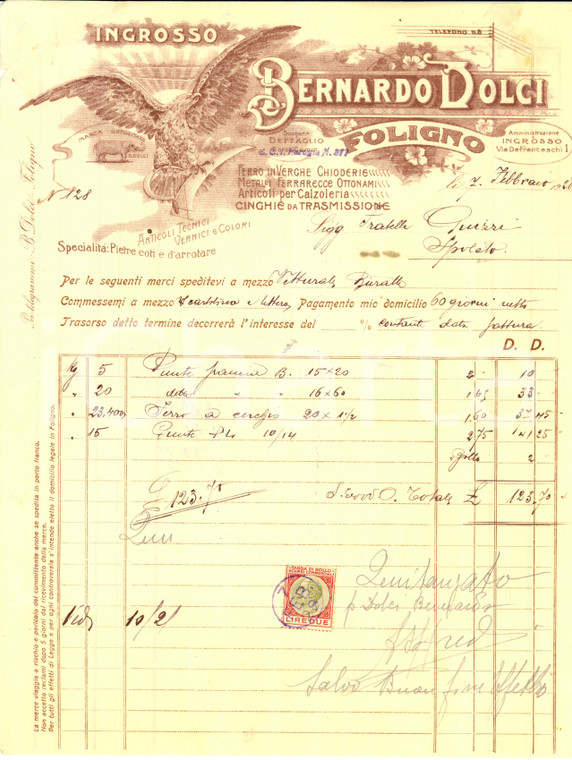 INGROSSO
TELEFONO N.8
BERNARDO DOLCI
FOLIGNO
DETTAGLIO
Amministrazione
INGROSSO
Via Deffranceschi 1
MARCA
FERRO IN VERGHE CHIODERIE
METALLI FERRARECCE OTTONAMI
ARTICOLI PER CALZOLERIA
CINGHIE DA TRASMISSIONE
N° 128
li 7 Febbraio 192
ARTICOLI TECNICI
VERNICI E COLORI
Specialità: Pietre coti e d'arrotare
Sigg Fratelli Guizzi
Spoleto
Per telegrammi: B. Dolci - Foligno
Per le seguenti merci speditevi a mezzo Vetturale Buratti
Commessemi a mezzo Vs cartolina e lettera Pagamento mio domicilio 60 giorni netto
Trasorso detto termine decorrerà l'interesse del % contante data fattura
D. D.
Kg 5 Punte B. 15x20 2 - 10
" 20 dette " " 16x60 1,65 33 -
" 23,400 Ferro a cerchio 20 x 1 1/2 1,60 37 45
" 15 Punte 10/14 2,75 41 25
Bollo 2 -
£ 123.70
S.E.O.O. Totale £ 123.70
TASSA DI BOLLO
LIRE DUE
Quietanzato
p Dolci Bernardo
10/2
Salvo Buon fine effetto
La merce viaggia a rischio e pericolo del committente anche se spedita in porto franco.
Non accetto reclami dopo 5 giorni dal ricevimento della merce.
Per tutti gli effetti di Legge e per ogni controversia s'intende eletto il domicilio legale in Foligno.